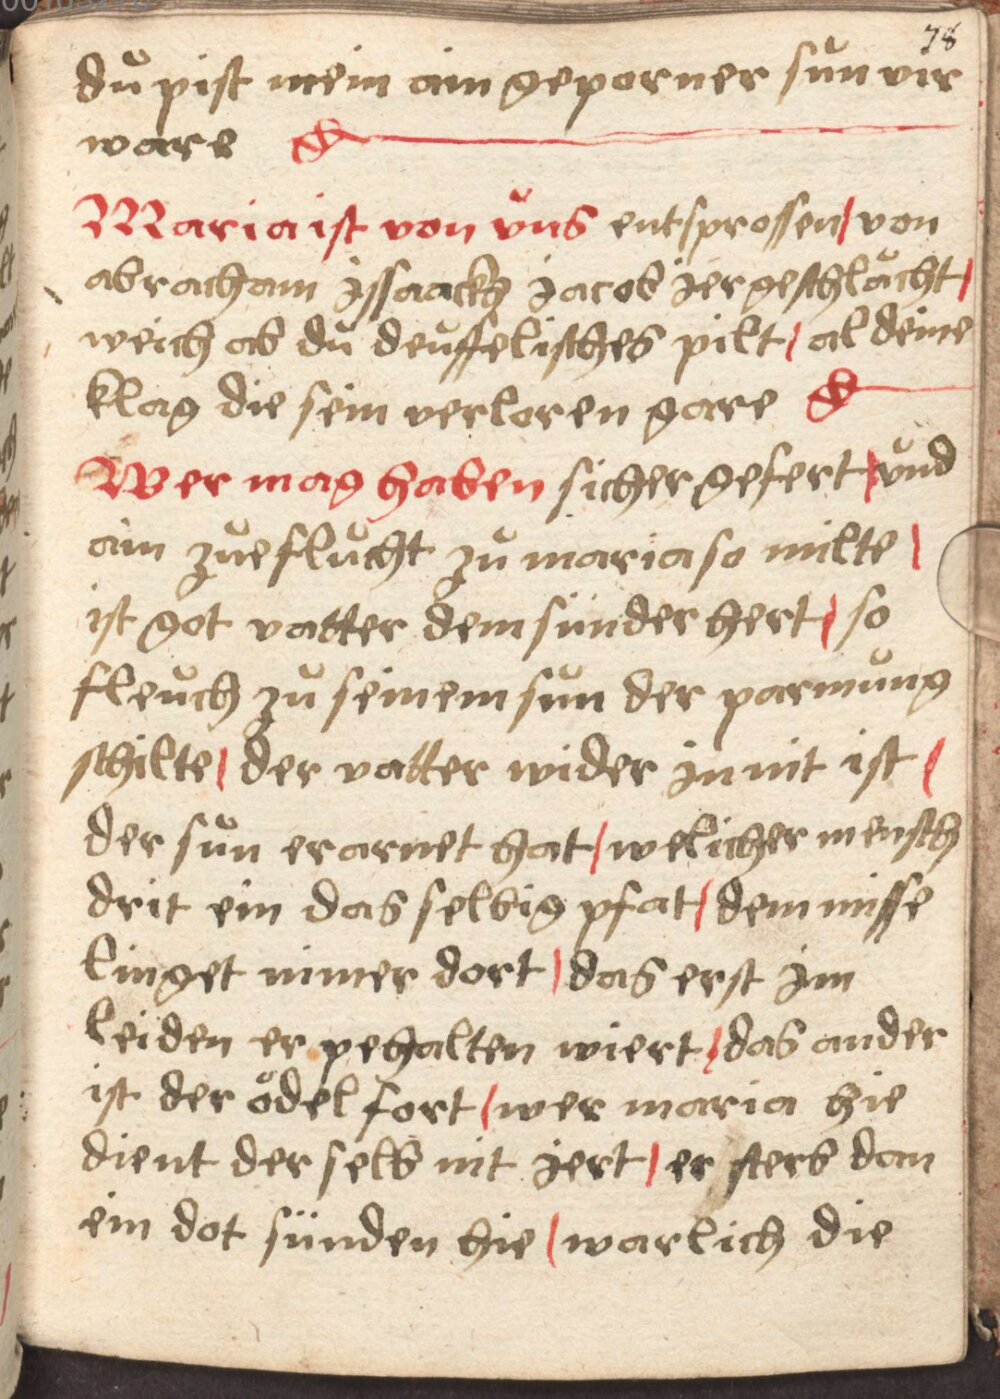 78
dů pist mein ain geporner sůn vir
ware
Maria ist von vns entsprossen / von
abracham jssaackh jacob jer geschlächt /
weich ab dů deüffelisches pilt / al deine
klag die sein verloren gare
Wer mag haben sicher gefert / vnd
ain zůeflůcht zů maria so milte /
ist got vatter dem sünder hert / so
fleůch zů seinem sůn der parmůng
schilte / der vatter wider jn nit ist /
der sůn erarnet hat / welicher mensch
drit ein das selbig pfat / dem misse
linget nimer dort / das erst jm
leiden er pehalten wiert / das ander
ist der ödel fort / wer maria hie
dient der selb nit jert / er sterb dan
ein dot sünden hie / warlich die